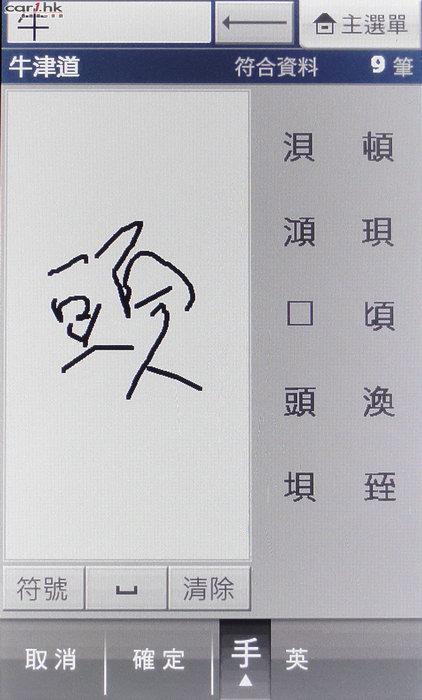 car1.hk
牛
主選單
牛津道 符合資料 9 筆
頭
湏 頓
湏 現
□ 頃
頭 渙
垻
符號 ⌴ 清除
取消 確定 手 英